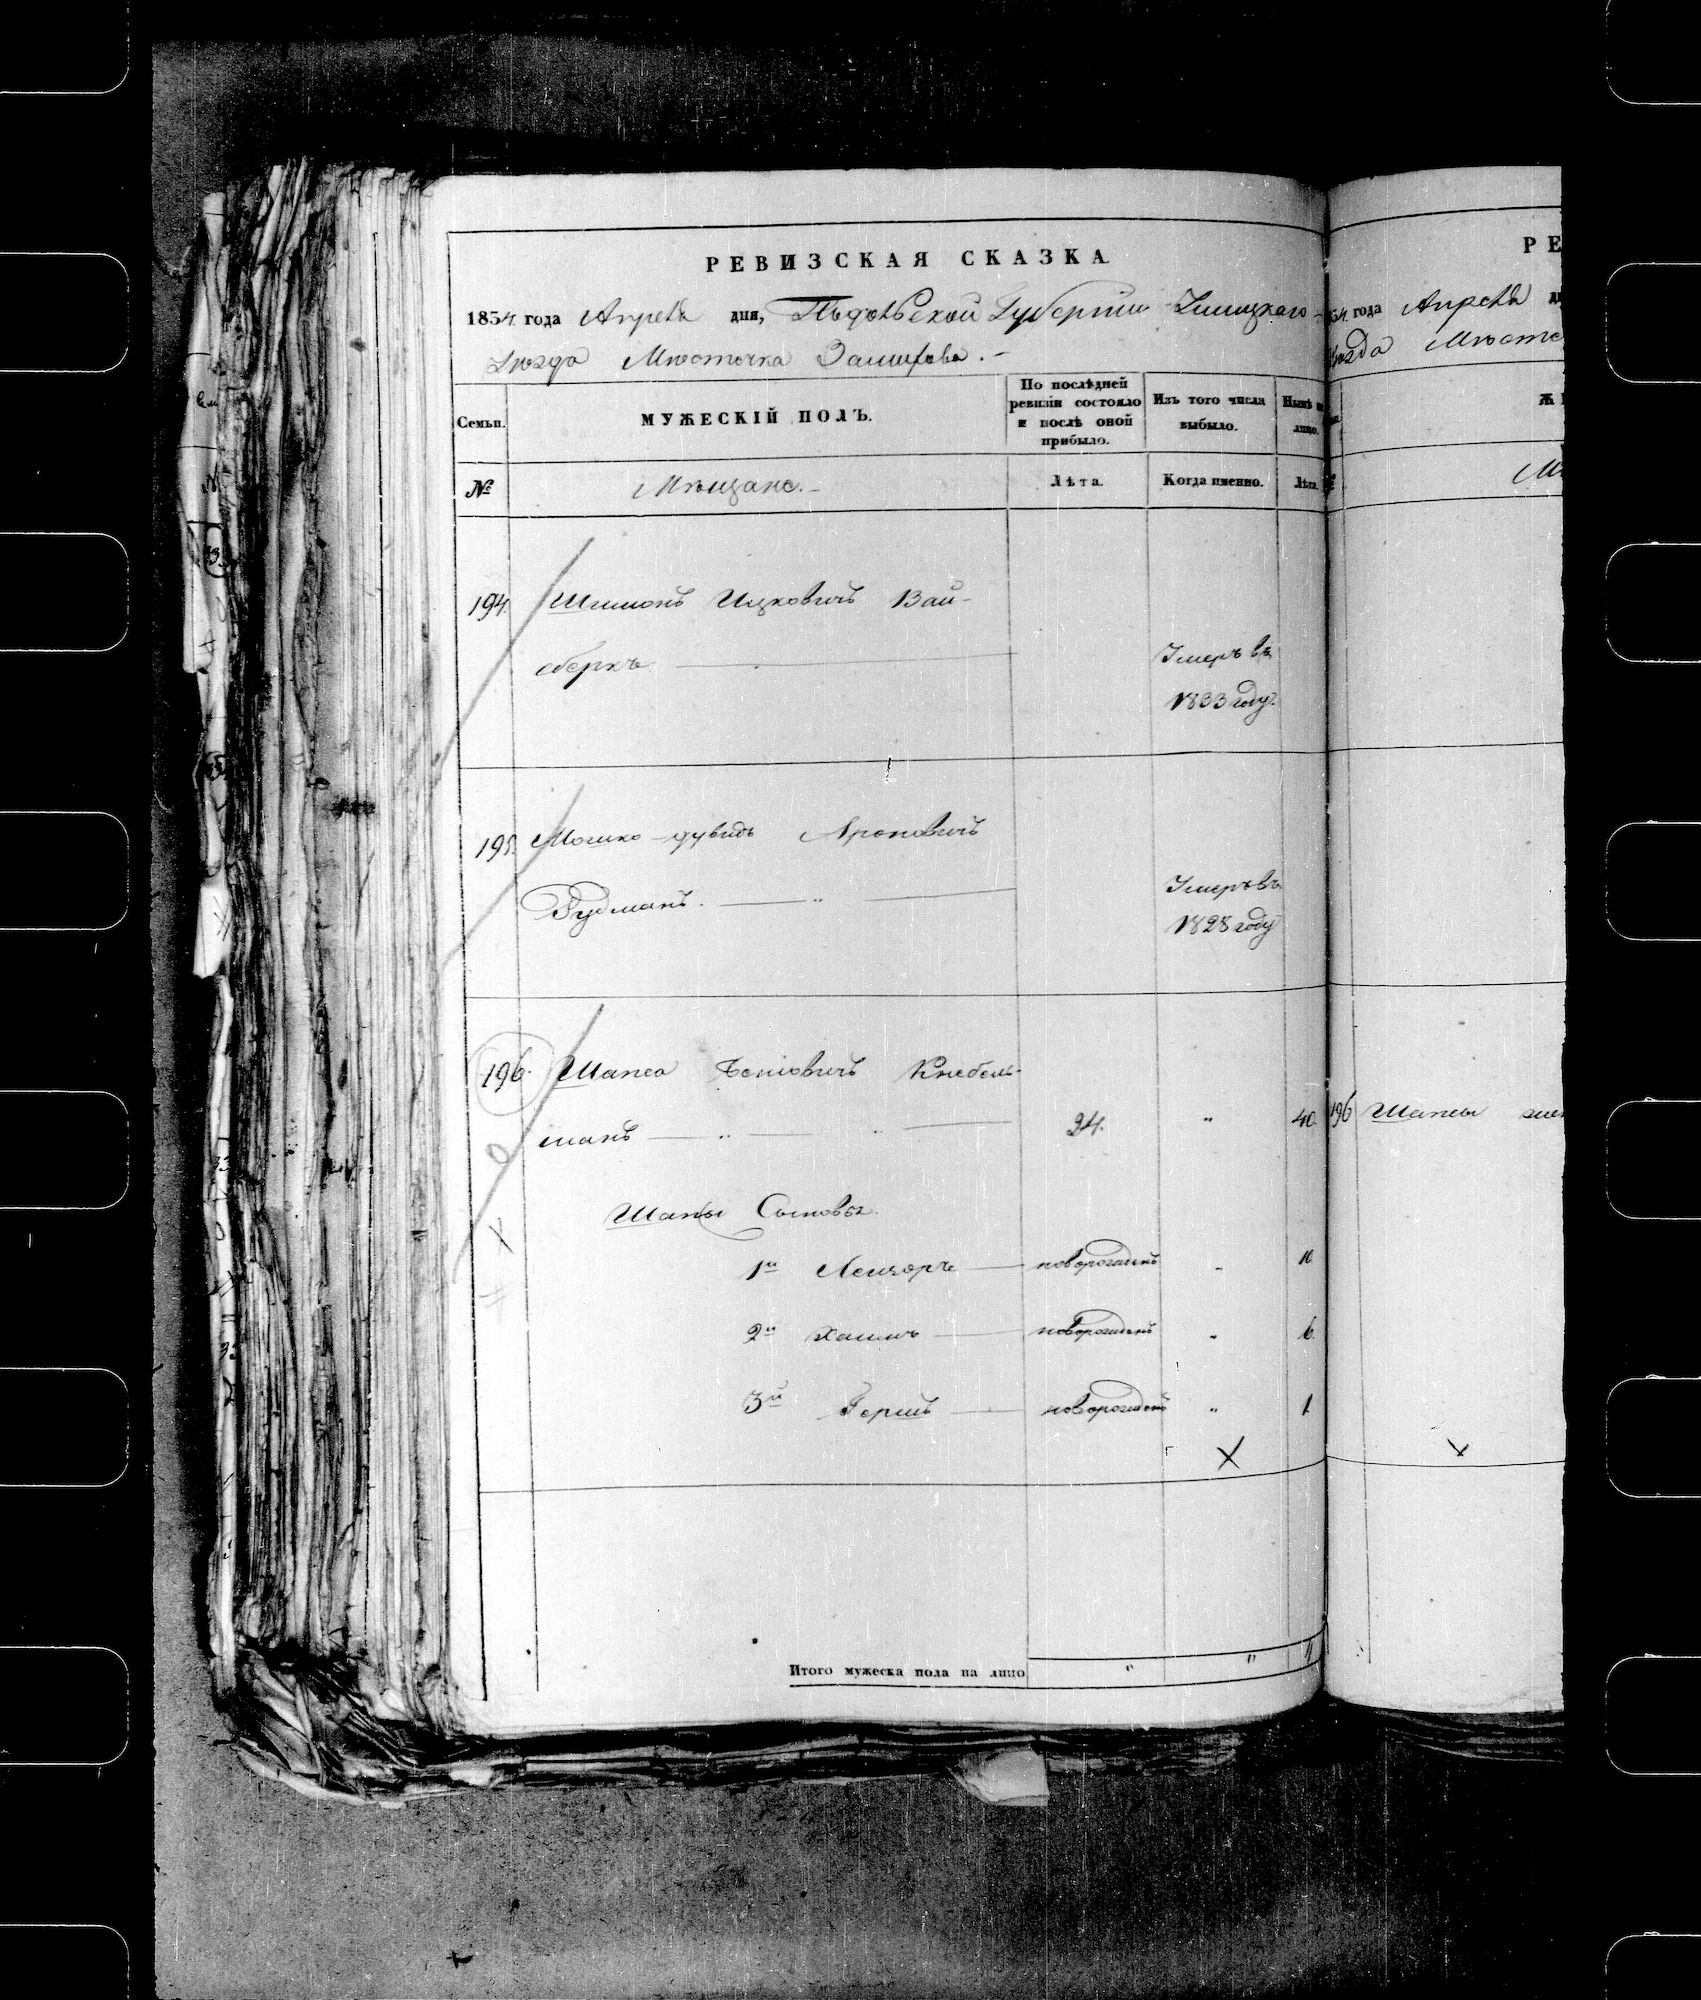 РЕВИЗСКАЯ СКАЗКА
1834 года Апреля дня, Подольской Губернии Ушицкаго
Уезда Мѣстечка Замихова.
Семьи. МУЖЕСКІЙ ПОЛЪ. По послѣдней ревизіи состояло и послѣ оной прибыло. Изъ того числа выбыло. Нынѣ на лицо.
№ Мѣщане. Лѣта. Когда именно. Лѣта.
194. Шимонъ Ицковичъ Вай-
сберкъ Умеръ въ
1833 году.
195. Мошко-дувидъ Ароновичъ
Гудманъ. Умеръ въ
1828 году
196. Шапса Веніовичъ Кнебель-
манъ 24. " 40.
Шапсы Сыновья
1й Лейзоръ новорожденъ " 10
2й Хаимъ новорожденъ " 6.
3й Гершъ новорожденъ " 1
Итого мужеска пола на лицо " " 4
РЕ
34 года Апреля д
Уѣзда Мѣсте
Ж
Мѣ
196 Шапсы жен